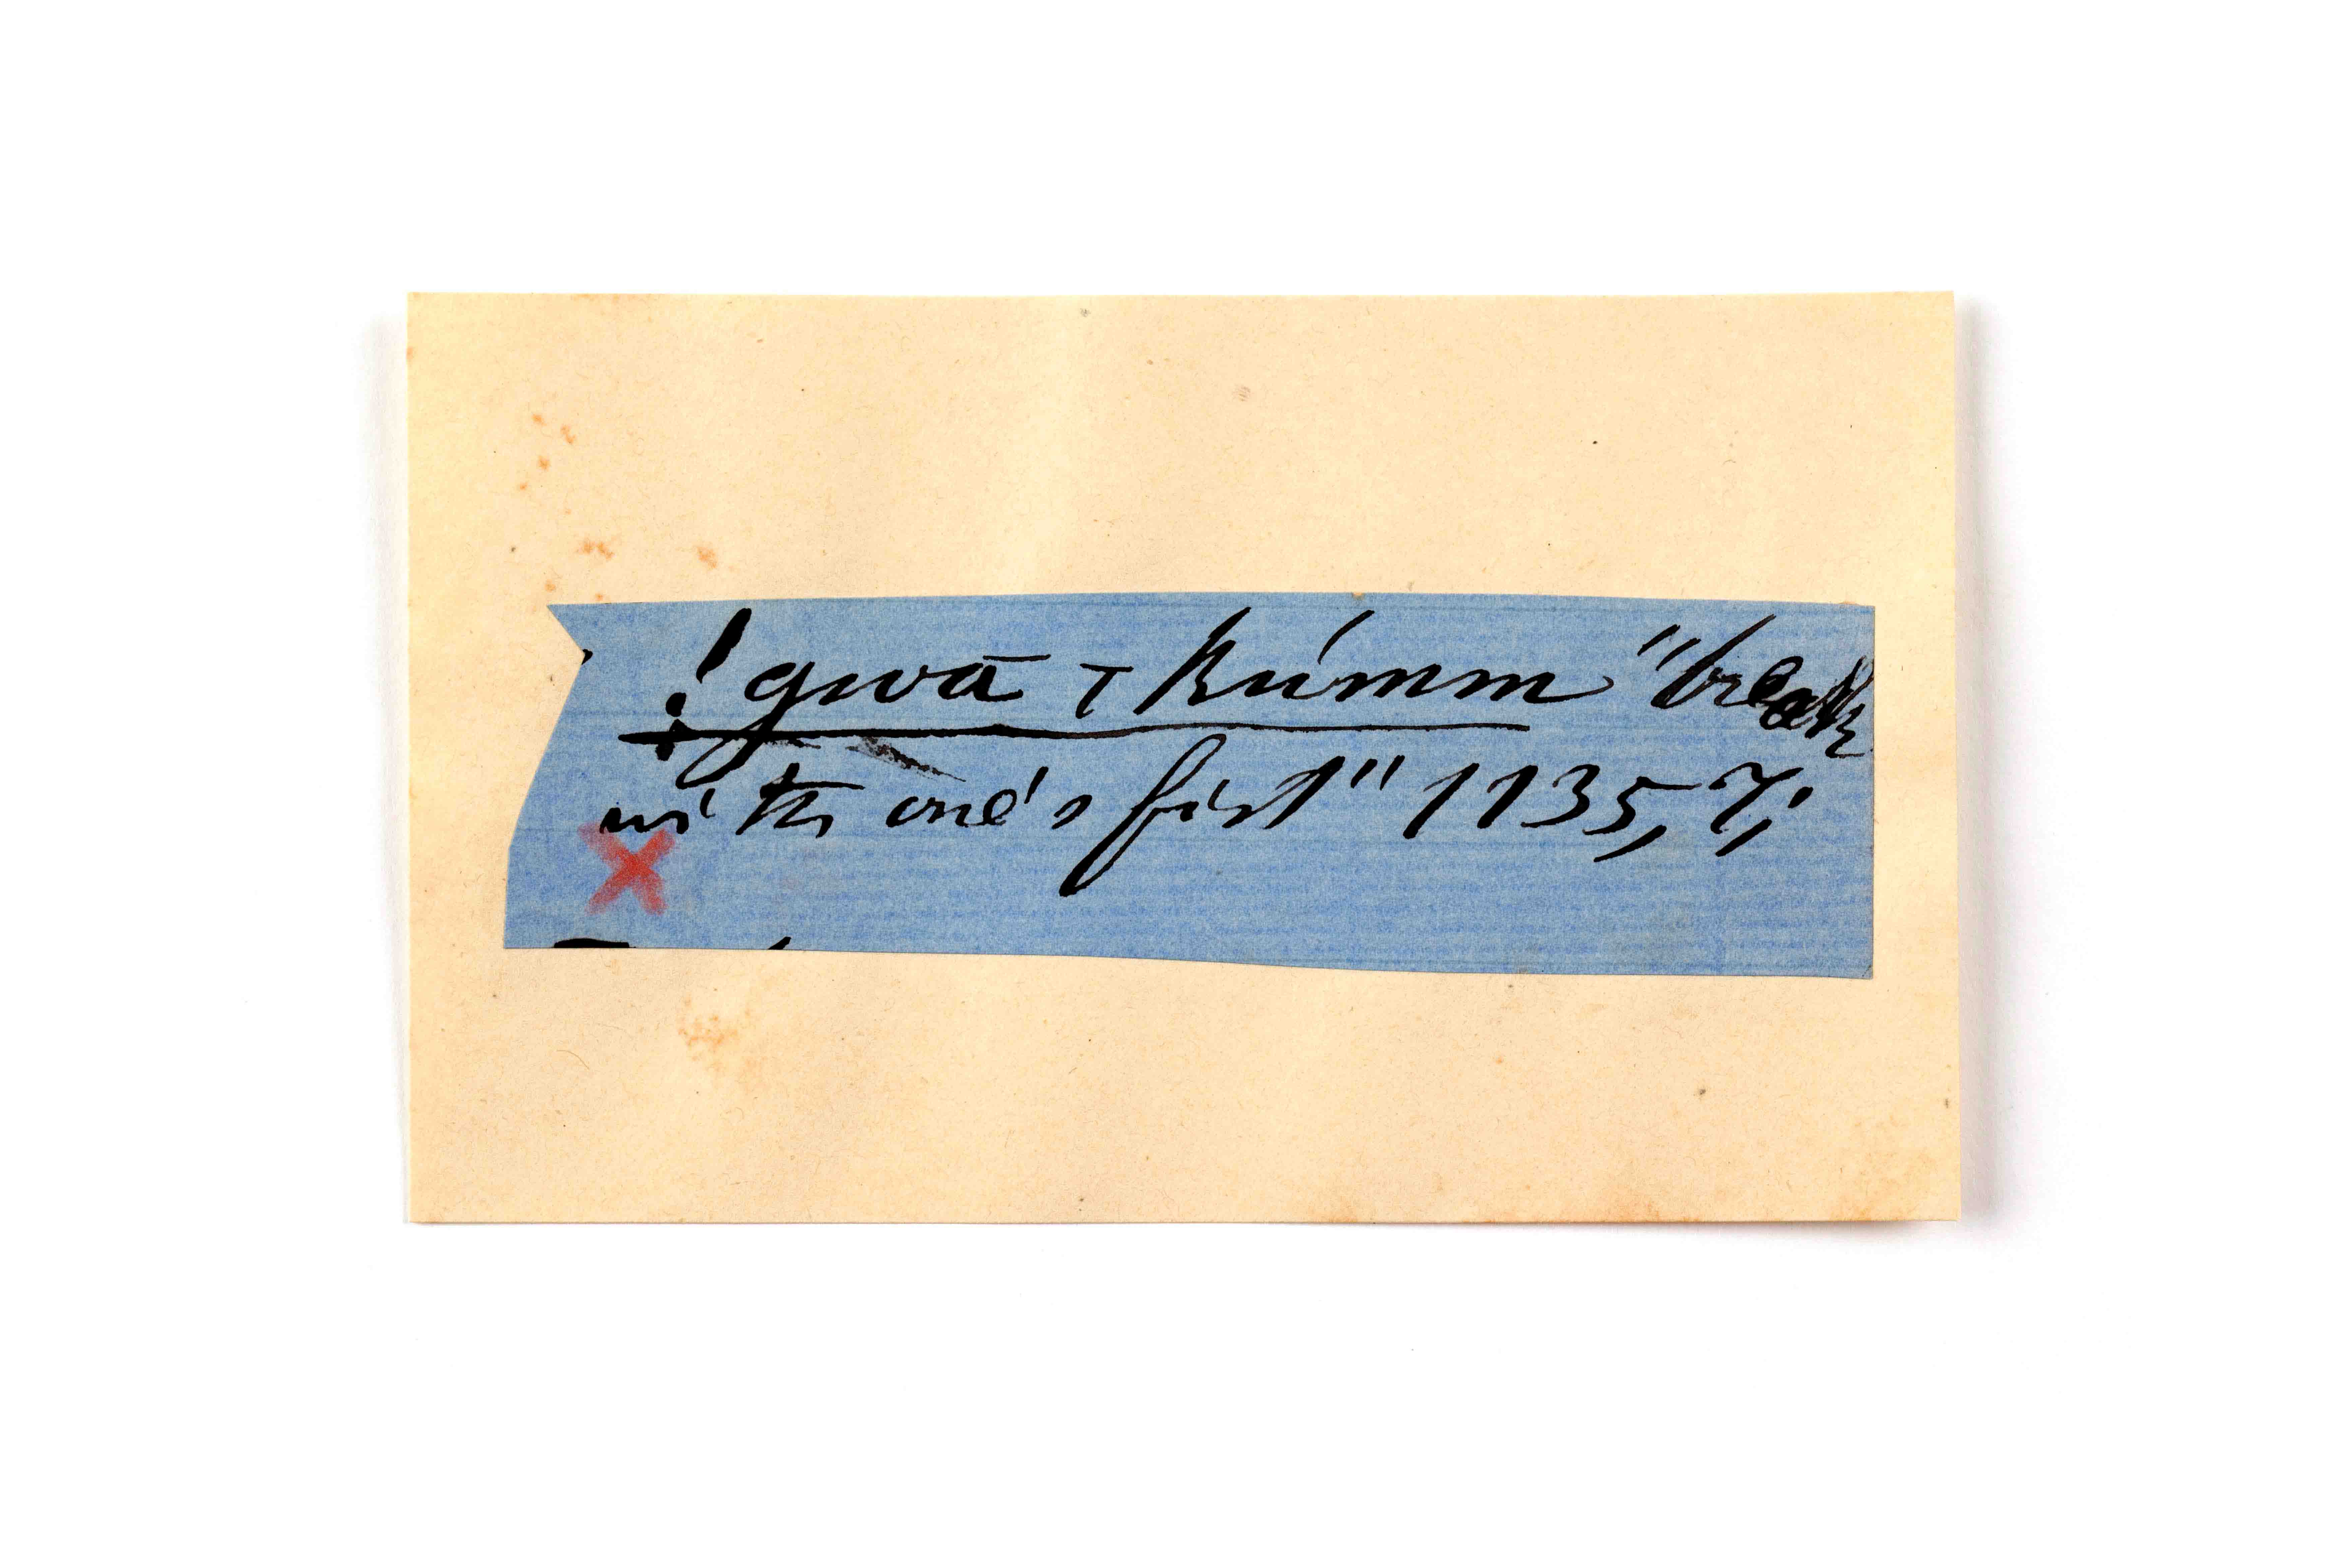 !gwā τ kúmm "break
with one's fist" 1135, 7;